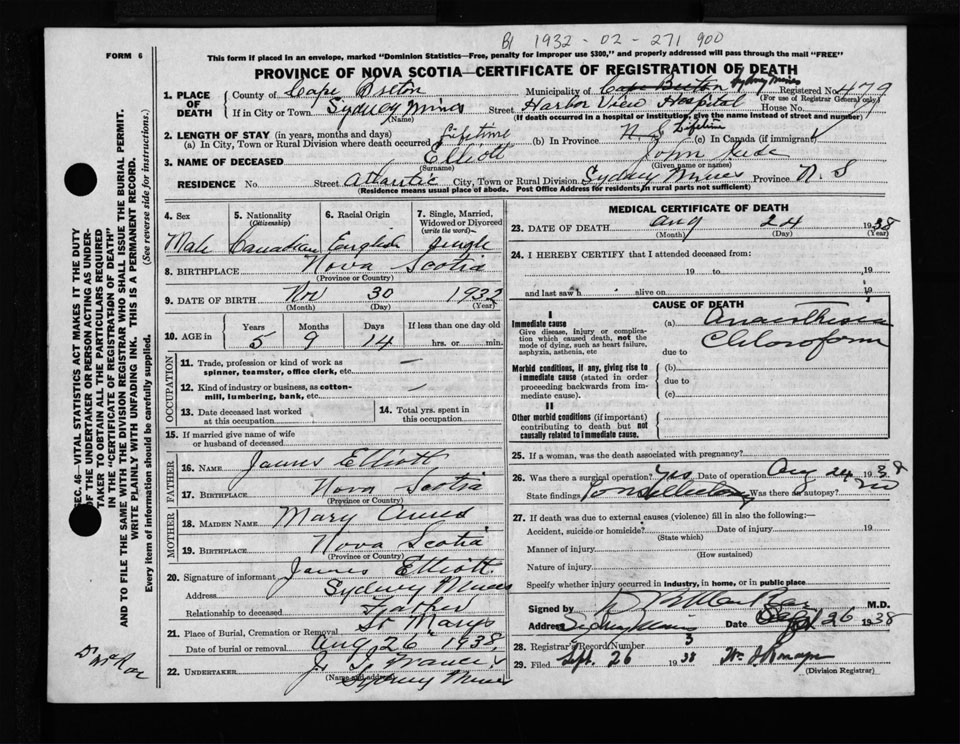 B1 1932-02-271900
FORM 6
This form if placed in an envelope, marked "Dominion Statistics—Free, penalty for improper use $300," and properly addressed will pass through the mail "FREE"
PROVINCE OF NOVA SCOTIA—CERTIFICATE OF REGISTRATION OF DEATH
1. PLACE OF DEATH
County of Cape Breton Municipality of Cape Breton Sydney Mines Registered No 479
(For use of Registrar General only)
If in City or Town Sydney Mines Street Harbor View Hospital House No.
(Name) (If death occurred in a hospital or institution, give the name instead of street and number)
2. LENGTH OF STAY (in years, months and days)
(a) In City, Town or Rural Division where death occurred Lifetime (b) In Province N. S. Lifetime (c) In Canada (if immigrant)
3. NAME OF DECEASED Elliott John
(Surname) (Given name or names)
RESIDENCE No. Street Atlantic City, Town or Rural Division Sydney Mines Province N. S
(Residence means usual place of abode. Post Office Address for residents in rural parts not sufficient)
4. Sex
5. Nationality (Citizenship)
6. Racial Origin
7. Single, Married, Widowed or Divorced (write the word)
Male Canadian English Single
8. BIRTHPLACE Nova Scotia
(Province or Country)
9. DATE OF BIRTH Nov 30 1932
(Month) (Day) (Year)
10. AGE in Years Months Days If less than one day old
5 9 14 hrs. or min.
OCCUPATION
11. Trade, profession or kind of work as spinner, teamster, office clerk, etc. —
12. Kind of industry or business, as cotton-mill, lumbering, bank, etc. —
13. Date deceased last worked at this occupation
14. Total yrs. spent in this occupation
15. If married give name of wife or husband of deceased
FATHER
16. NAME James Elliott
17. BIRTHPLACE Nova Scotia
(Province or Country)
MOTHER
18. MAIDEN NAME Mary
19. BIRTHPLACE Nova Scotia
(Province or Country)
20. Signature of informant James Elliott
Address Sydney Mines
Relationship to deceased Father
21. Place of Burial, Cremation or Removal St Marys
Date of burial or removal Aug 26 1938
22. UNDERTAKER
(Name and address)
Sydney Mines
MEDICAL CERTIFICATE OF DEATH
23. DATE OF DEATH Aug 24 1938
(Month) (Day) (Year)
24. I HEREBY CERTIFY that I attended deceased from:
19 to 19
and last saw h alive on 19
CAUSE OF DEATH
I
Immediate cause
Give disease, injury or complication which caused death, not the mode of dying, such as heart failure, asphyxia, asthenia, etc
(a) Anaesthesia
Chloroform
due to
Morbid conditions, if any, giving rise to immediate cause (stated in order proceeding backwards from immediate cause).
(b)
due to
(c)
II
Other morbid conditions (if important) contributing to death but not causally related to immediate cause.
25. If a woman, was the death associated with pregnancy?
26. Was there a surgical operation? Yes Date of operation Aug 24 1938
State findings Tonsillectomy Was there an autopsy? no
27. If death was due to external causes (violence) fill in also the following:
Accident, suicide or homicide? Date of injury 19
(State which)
Manner of injury
(How sustained)
Nature of injury
Specify whether injury occurred in industry, in home, or in public place
Signed by M.D.
Address Sydney Mines Date Sept 26 1938
28. Registrar's Record Number 3
29. Filed Sept. 26 1938
(Division Registrar)
SEC. 46—VITAL STATISTICS ACT MAKES IT THE DUTY
OF THE UNDERTAKER OR PERSON ACTING AS UNDER-
TAKER TO OBTAIN ALL THE PARTICULARS REQUIRED
IN THE "CERTIFICATE OF REGISTRATION OF DEATH"
AND TO FILE THE SAME WITH THE DIVISION REGISTRAR WHO SHALL ISSUE THE BURIAL PERMIT.
WRITE PLAINLY WITH UNFADING INK. THIS IS A PERMANENT RECORD.
Every item of information should be carefully supplied. (See reverse side for instructions.)
Dr McRae